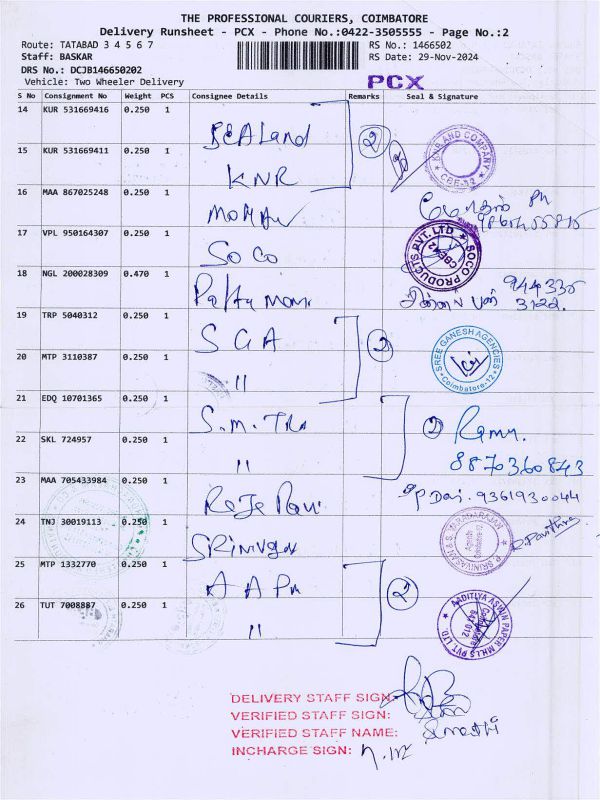 THE PROFESSIONAL COURIERS, COIMBATORE
Delivery Runsheet - PCX - Phone No.:0422-3505555 - Page No.:2
Route: TATABAD 3 4 5 6 7 RS No.: 1466502
Staff: BASKAR RS Date: 29-Nov-2024
DRS No.: DCJB146650202
Vehicle: Two Wheeler Delivery
PCX
S No Consignment No Weight PCS Consignee Details Remarks Seal & Signature
14 KUR 531669416 0.250 1 SEALand 2
KNR AND COMPANY CBE-12
15 KUR 531669411 0.250 1 KNR
16 MAA 867025248 0.250 1 MOHAN Ph
17 VPL 950164307 0.250 1 SOCO
SOCO PRODUCTS PVT. LTD CBE-12
18 NGL 200028309 0.470 1 944335
3122.
19 TRP 5040312 0.250 1 SGA 2
SREE GANESH AGENCIES Coimbatore-12
20 MTP 3110387 0.250 1 11
21 EDQ 10701365 0.250 1 S.M. 2 Ramu.
22 SKL 724957 0.250 1 11 8870360843
23 MAA 705433984 0.250 1 Raja Ravi 9361930044
24 TNJ 30019113 0.250 1 SRINIVSAN R. Pavithra
25 MTP 1332770 0.250 1 AAPM 2
26 TUT 7008887 0.250 1 11
AADITIYA ASWIN PAPER MILLS PVT LTD Coimbatore 641 012
DELIVERY STAFF SIGN:
VERIFIED STAFF SIGN:
VERIFIED STAFF NAME:
INCHARGE SIGN: